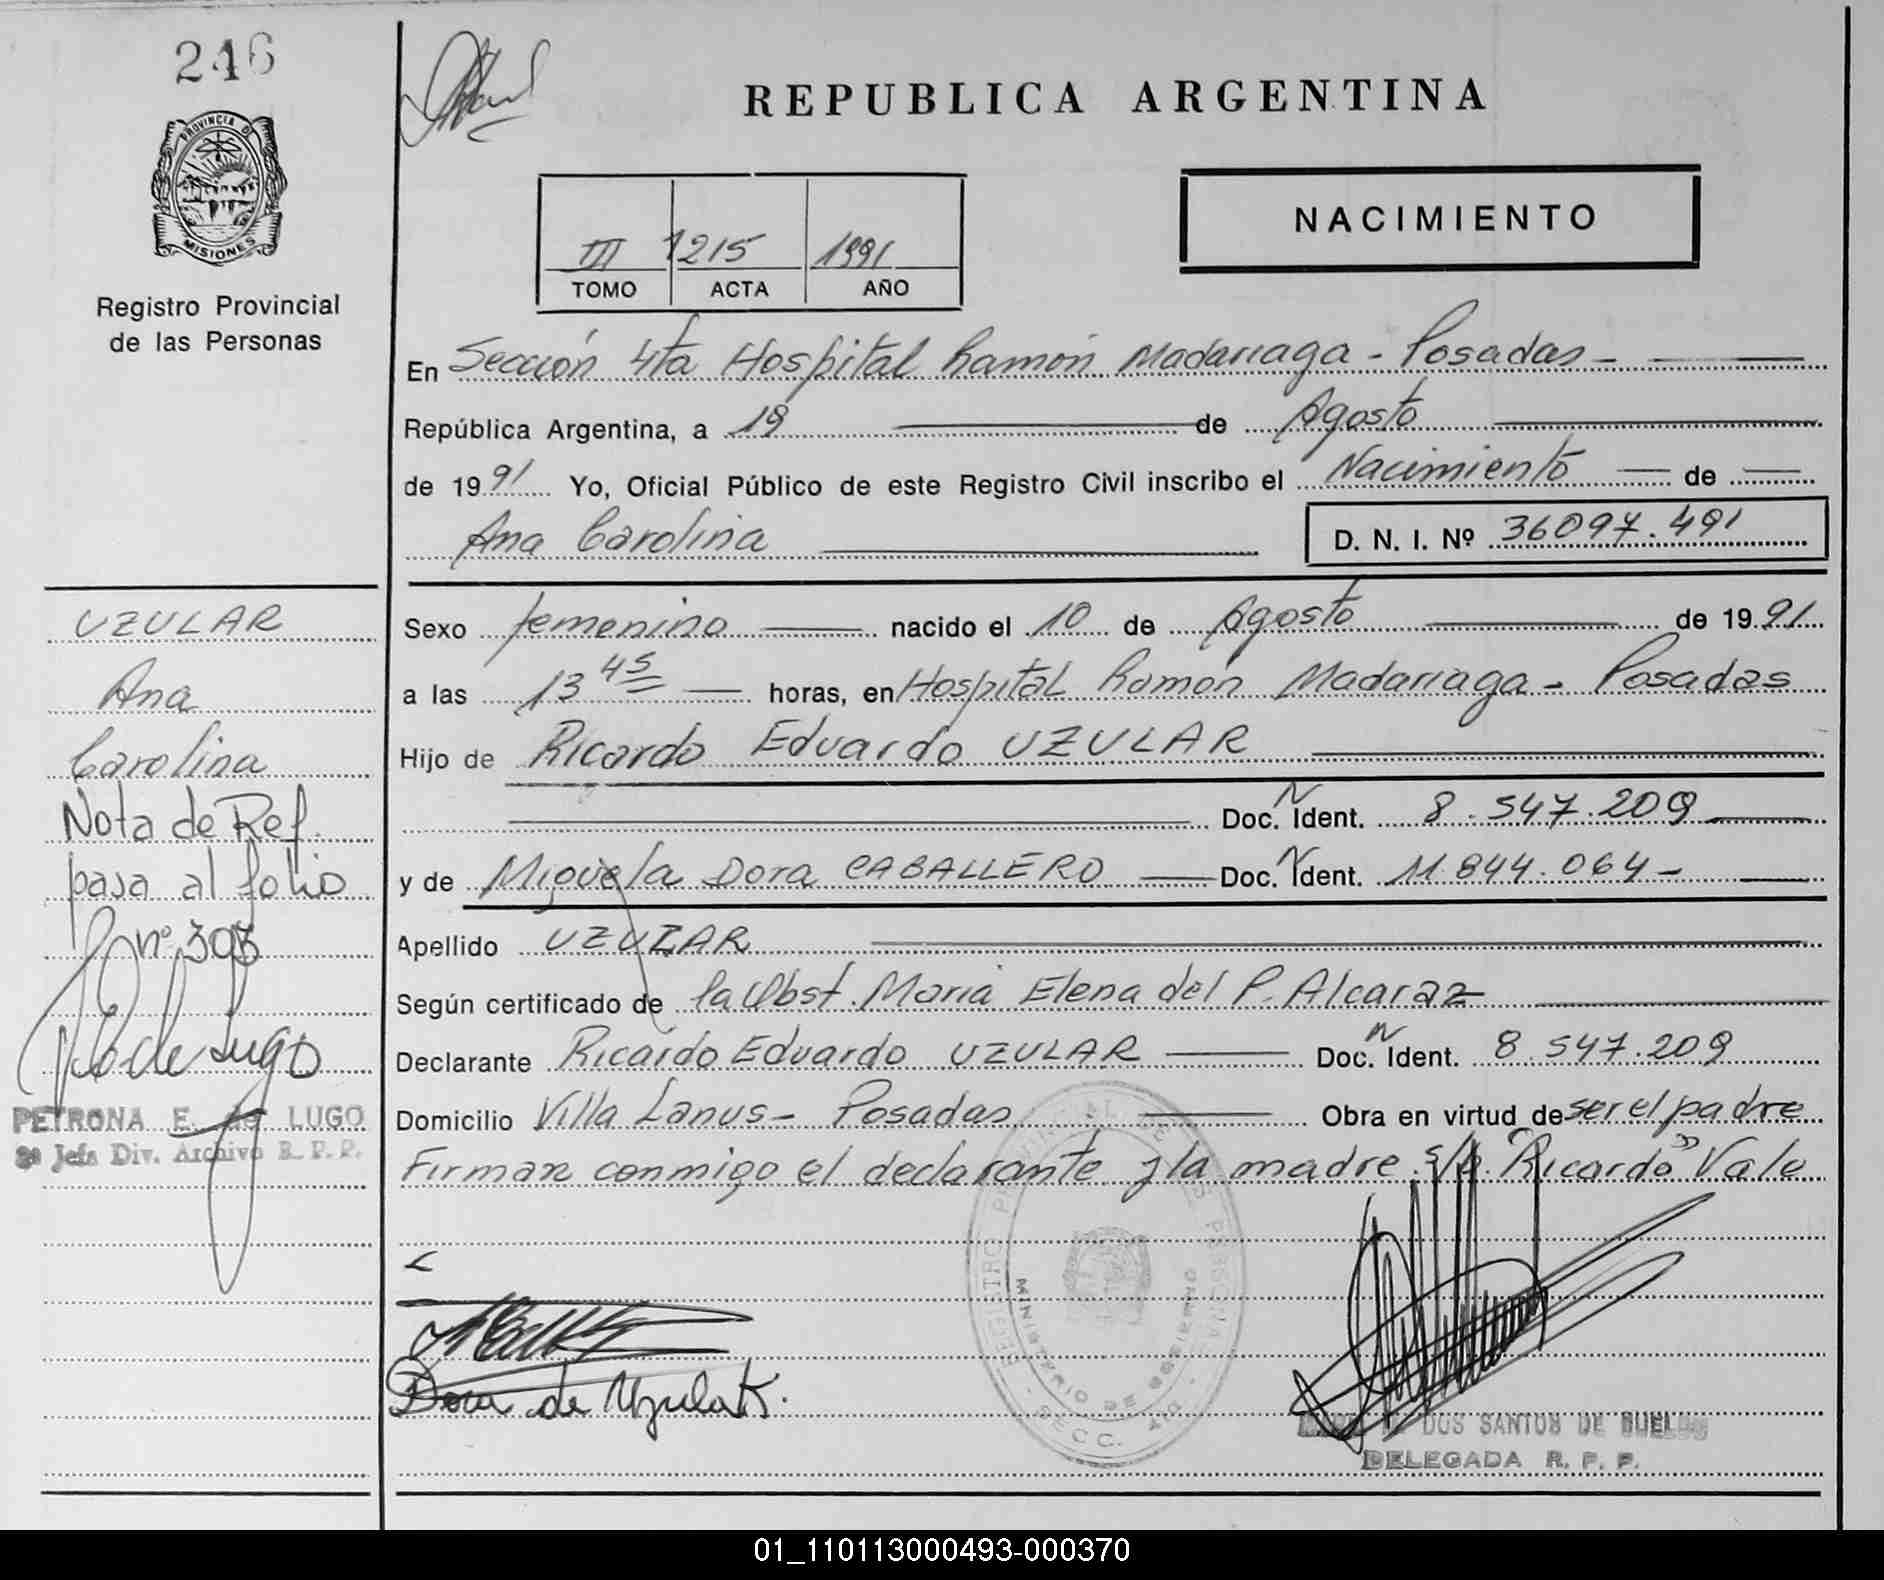 246
PROVINCIA DE
MISIONES
Registro Provincial
de las Personas
REPUBLICA ARGENTINA
III 1215 1991
TOMO ACTA AÑO
NACIMIENTO
En Sección 4ta Hospital Ramón Madariaga - Posadas -
República Argentina, a 19 de Agosto
de 1991 Yo, Oficial Público de este Registro Civil inscribo el Nacimiento de
Ana Carolina D. N. I. Nº 36097.491
Sexo femenino nacido el 10 de Agosto de 1991
a las 13 45 horas, en Hospital Ramón Madariaga - Posadas
Hijo de Ricardo Eduardo UZULAR
Doc. N Ident. 8.547.209
y de Miguela Dora CABALLERO Doc. N Ident. 11.844.064-
Apellido UZULAR
Según certificado de la Obst. María Elena del P. Alcaraz
Declarante Ricardo Eduardo UZULAR Doc. N Ident. 8.547.209
Domicilio Villa Lanus - Posadas Obra en virtud de ser el padre
Firman conmigo el declarante y la madre. s/p. "Ricardo" Vale
UZULAR
Ana
Carolina
Nota de Ref.
pasa al folio
nº 303
de Lugo
PETRONA E. de LUGO
Jefa Div. Archivo R. P. P.
Dora de Uzular
REGISTRO PROVINCIAL DE LAS PERSONAS
MINISTERIO DE GOBIERNO
SECC. 4ta
DOS SANTOS DE BUELOS
DELEGADA R. P. P.
01_110113000493-000370